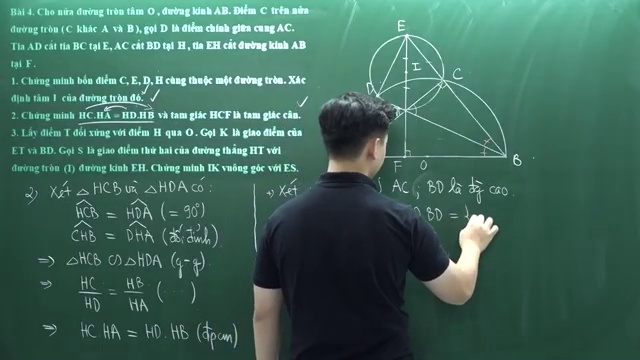 Bài 4. Cho nửa đường tròn tâm O, đường kính AB. Điểm C trên nửa
đường tròn (C khác A và B), gọi D là điểm chính giữa cung AC.
Tia AD cắt tia BC tại E, AC cắt BD tại H, tia EH cắt đường kính AB
tại F.
1. Chứng minh bốn điểm C, E, D, H cùng thuộc một đường tròn. Xác
định tâm I của đường tròn đó.
2. Chứng minh HC.HA = HD.HB và tam giác HCF là tam giác cân.
3. Lấy điểm T đối xứng với điểm H qua O. Gọi K là giao điểm của
ET và BD. Gọi S là giao điểm thứ hai của đường thẳng HT với
đường tròn (I) đường kính EH. Chứng minh IK vuông góc với ES.
E
I
C
D
F
O
B
2) Xét △HCB và △HDA có:
HCB = HDA (= 90°)
CHB = DHA (đối đỉnh)
⇒ △HCB ∽ △HDA (g-g)
⇒ HC/HD = HB/HA (...)
⇒ HC.HA = HD.HB (đpcm)
+) Xét
AC ; BD là đg cao.
BD =